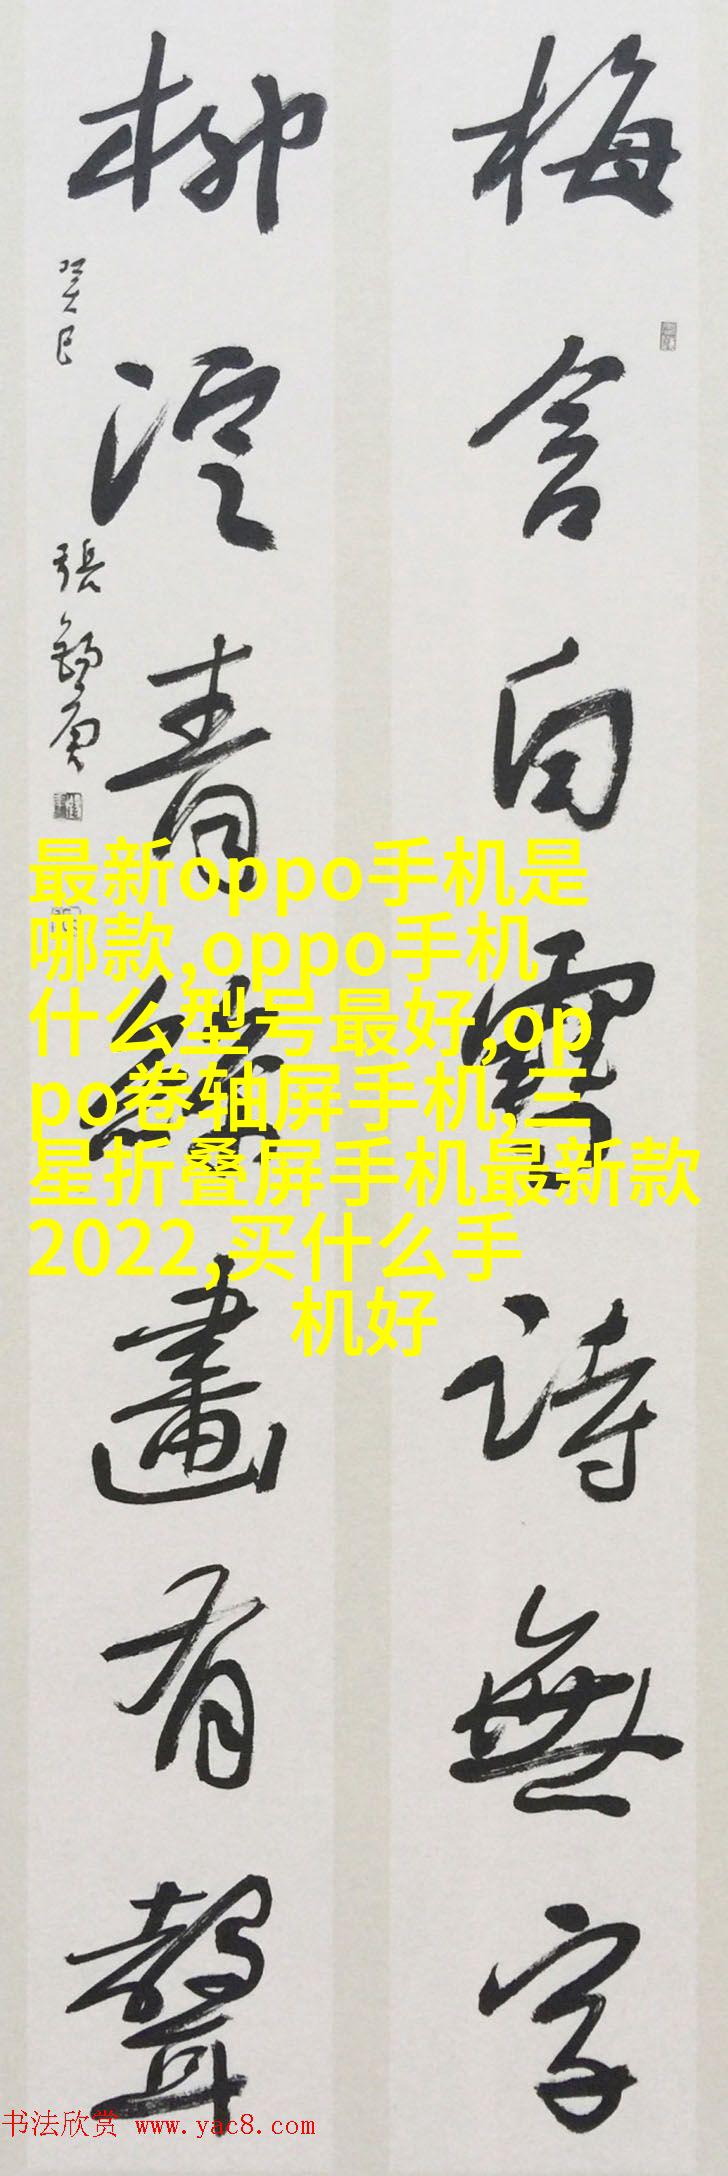 梅含白雪詩無字
柳浥青絲畫有聲
癸巳
張錫庚
最新oppo手机是
哪款,oppo手机
什么型号最好,op
po卷轴屏手机,三
星折叠屏手机最新款
2022,买什么手
机好
书法欣赏 www.yac8.com